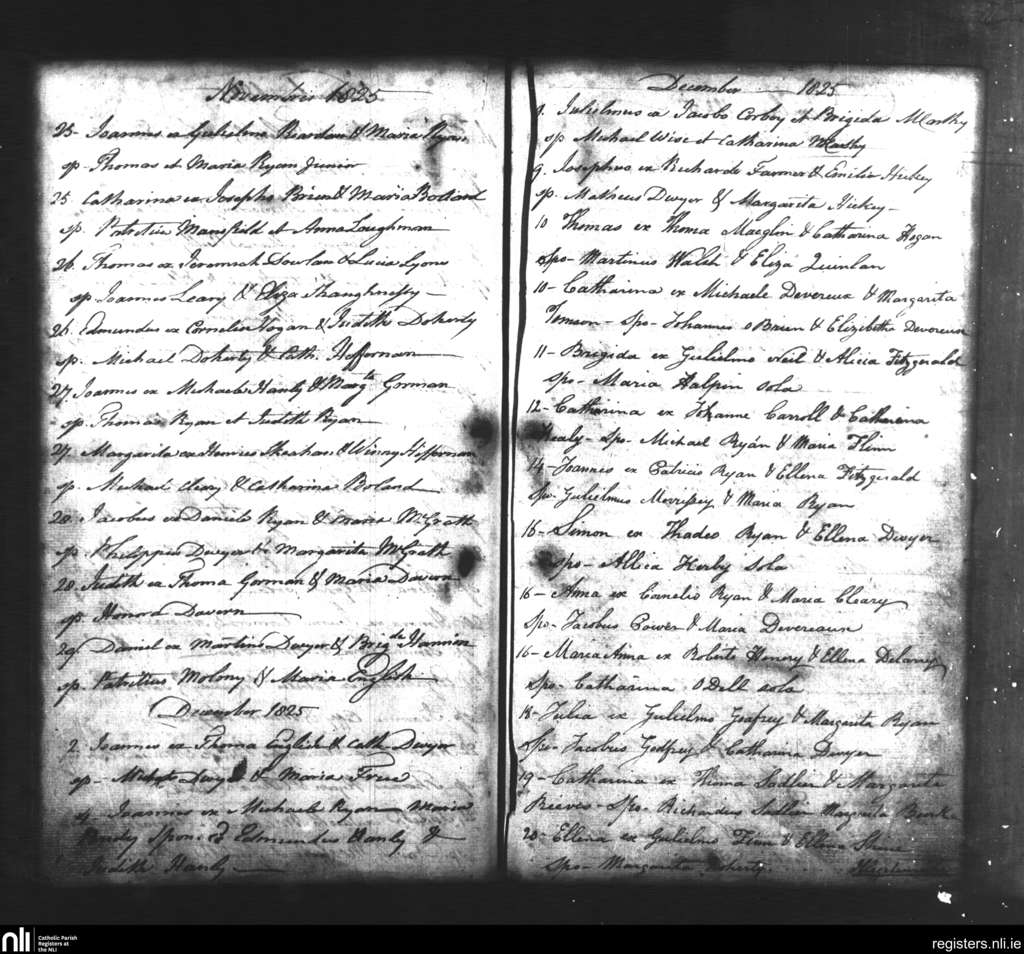 Novembris 1825
25. Joannes ex Gulielmo Reardon & Maria Ryan
sp. Thomas et Maria Ryan Junior
25. Catharina ex Josepho Brien & Maria Boland
sp. Patritiu Mansfield et Anna Loughman
26. Thomas ex Jeremiah Dowlan & Lucia Lyons
sp. Joannes Leary & Eliza
26. Edmundus ex Cornelio Hogan & Judith Doherty
sp. Michael Doherty & Cath. Heffernan
27. Joannes ex Michaele Hanly & Margta Gorman
sp. Thomas Ryan et Judith Ryan
27. Margarita ex Henrico & Winny Heffernan
sp. Michael Cleary & Catharina Boland
28. Jacobus ex Daniele Ryan & Maria McGrath
sp. Philippus Dwyer & Margarita McGrath
28. Judith ex Thoma Gorman & Maria Davern
sp. Honora Davern
29. Daniel ex Martino Dwyer & Brigde Hannan
sp. Patritius Molony & Maria English
December 1825
2. Joannes ex Thoma English & Cath. Dwyer
sp. Dwyer & Maria Free
4. Joannes ex Michaele Ryan Maria
Hanly Spon. Edmundus Hanly &
Judith Hanly
December 1825
9. Julielmus ex Jacobo Corboy et Brigida McCarthy
sp Michael Wise et Catharina McCarthy
9. Josephus ex Richardo Farmer & Emilia Hickey
sp. Matheus Dwyer & Margarita Hickey
10 Thomas ex Thoma & Catharina Hogan
Spo- Martinus Walsh & Eliza Quinlan
10- Catharina ex Michaele Devereux & Margarita
Tomson - Spo- Johannes o Brien & Elizibetha Devereux
11- Brigida ex Gulielmo Neil & Alicia Fitzgerald
Spo- Maria Halpin Sola
12- Catharina ex Johanne Carroll & Catharina
Healy- Spo- Michael Ryan & Maria Flinn
14- Joannes ex Patricio Ryan & Ellena Fitzgerald
Spo. Gulielmus Morrissey & Maria Ryan
16- Simon ex Thadeo Ryan & Ellena Dwyer
Spo- Allica Kerby Sola
16- Anna ex Cornelio Ryan & Maria Cleary
Spo- Jacobus Power & Maria Devereaux
16- Maria Anna ex Roberto & Ellena
Spo- Catharina ODell sola
18- Julia ex Gulielmo Godfrey & Margarita Ryan
Spo- Jacobus Godfrey & Catharina Dwyer
19- Catharina ex Thoma Sadlier & Margarita
Reeves- Spo- Richardus Margarita
20- Ellena ex Gulielmo Finn & Ellena
Spo- Margarita Doherty
nli
Catholic Parish
Registers at
the NLI
registers.nli.ie